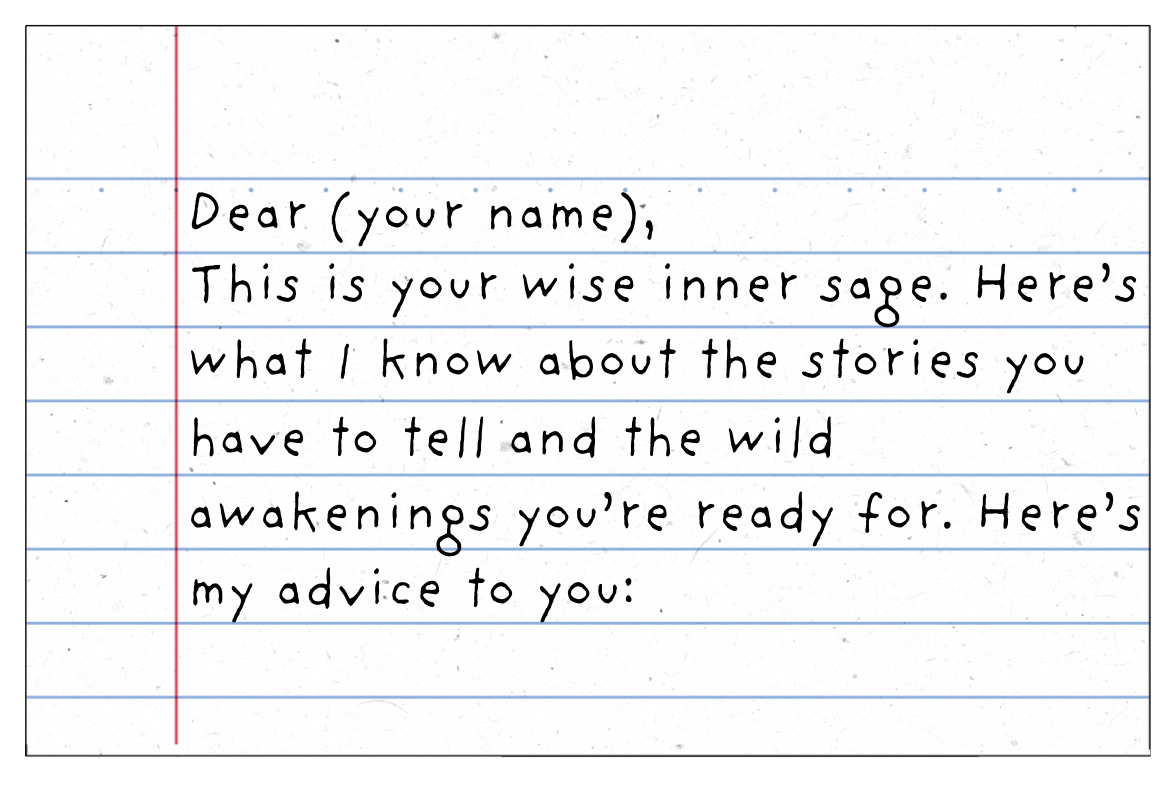 Dear (your name),
This is your wise inner sage. Here's
what I know about the stories you
have to tell and the wild
awakenings you're ready for. Here's
my advice to you: